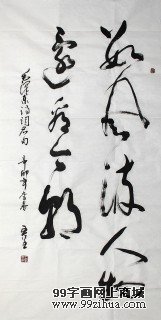 数风流人物
还看今朝
毛泽东诗词名句
辛卯年
99字画网上商城
www.99zihua.com